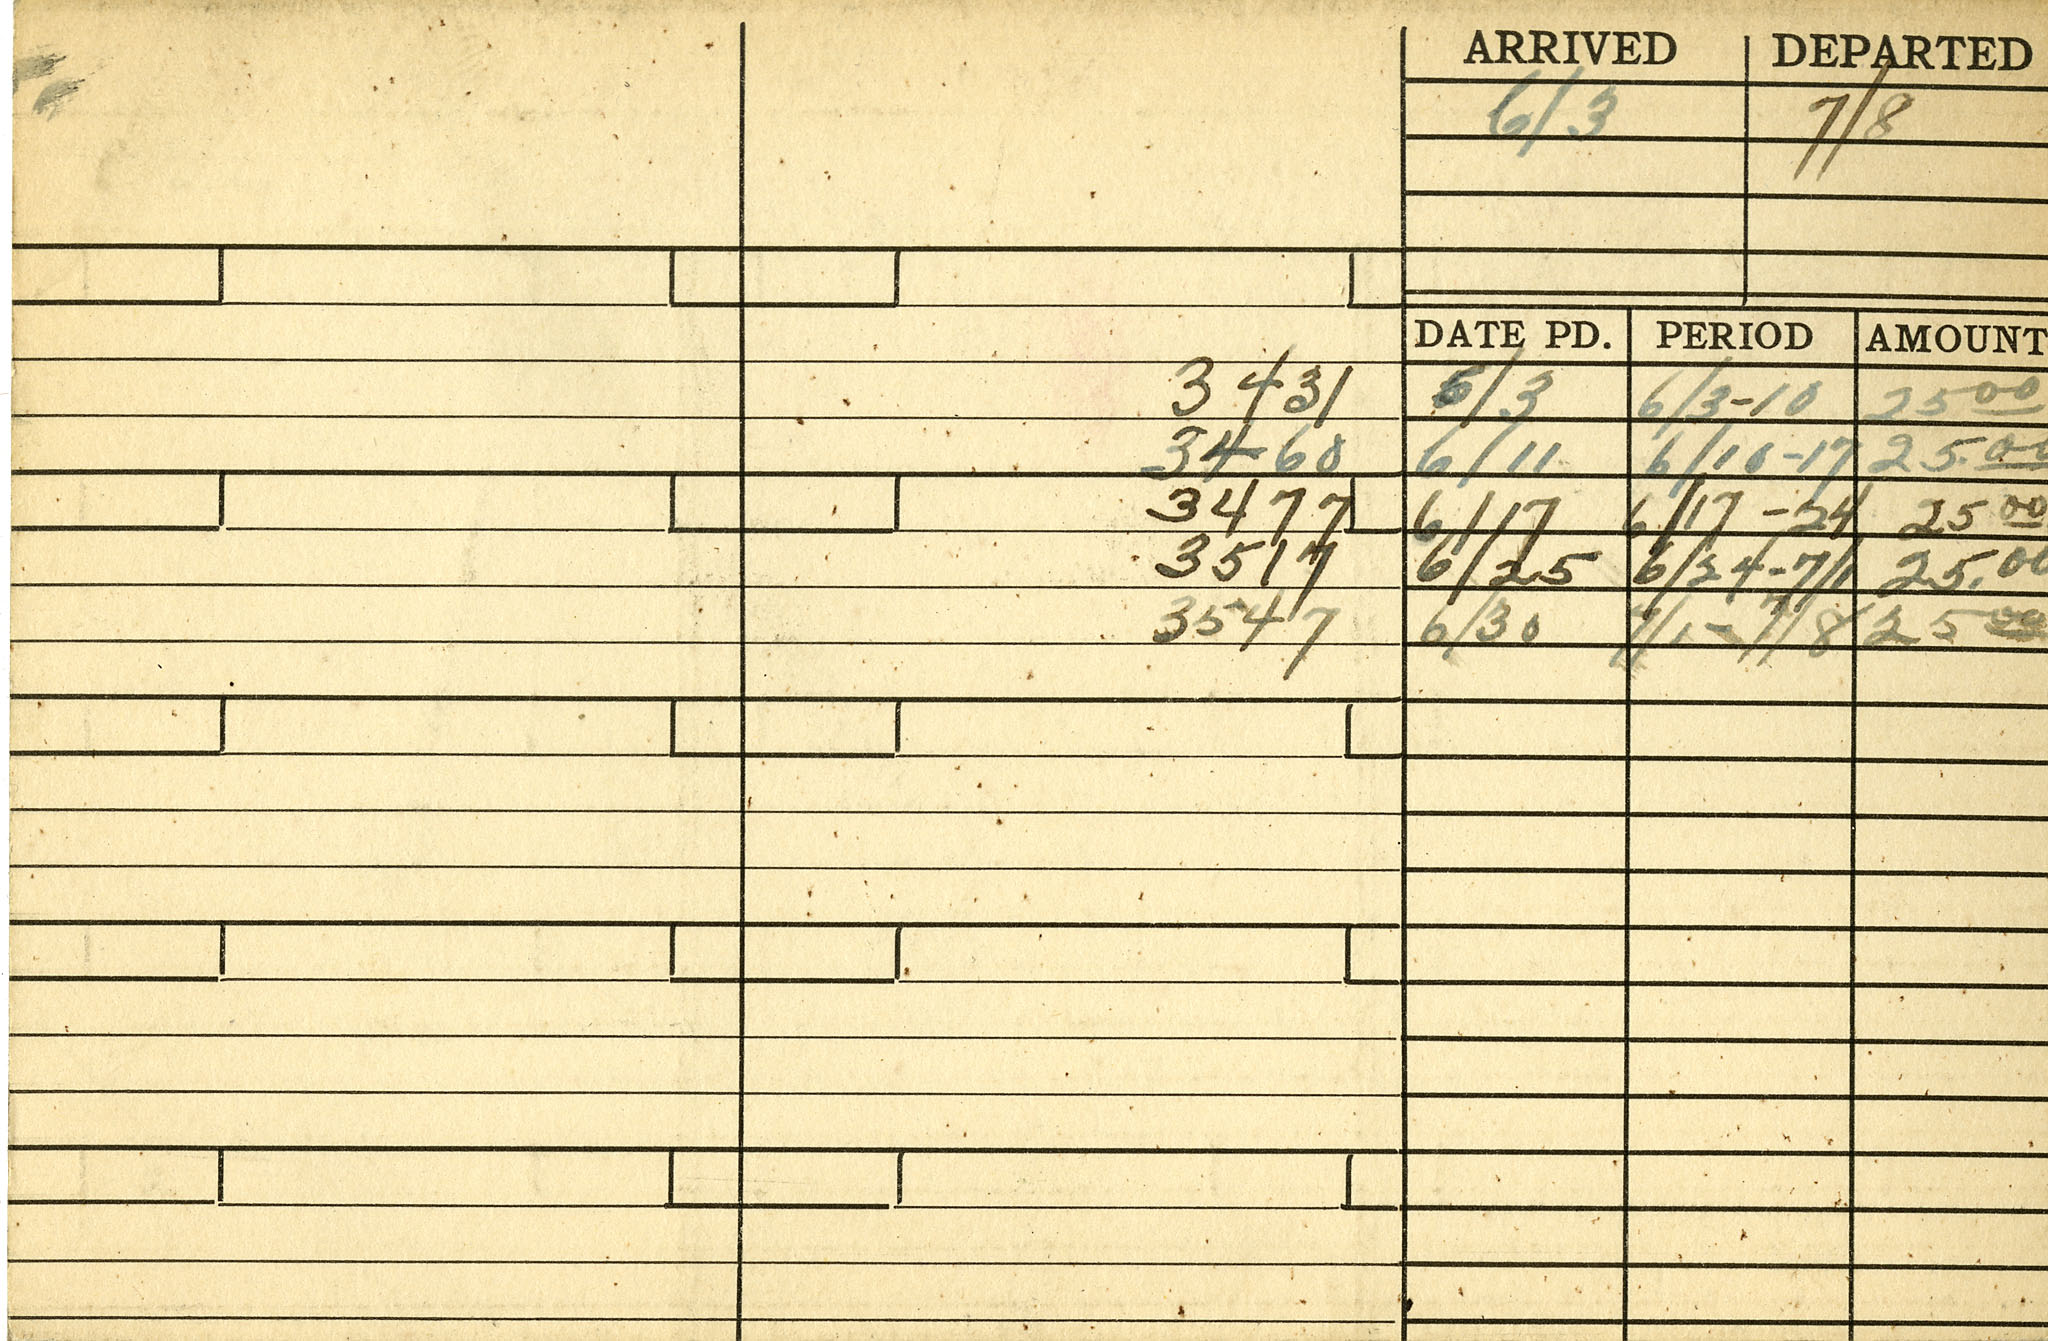 ARRIVED DEPARTED
6/3 7/8
DATE PD. PERIOD AMOUNT
3431 6/3 6/3-10 25 00
3460 6/11 6/10-17 25.00
3477 6/17 6/17-24 25 00
3517 6/25 6/24-7/1 25.00
3547 6/30 7/1-7/8 25 00